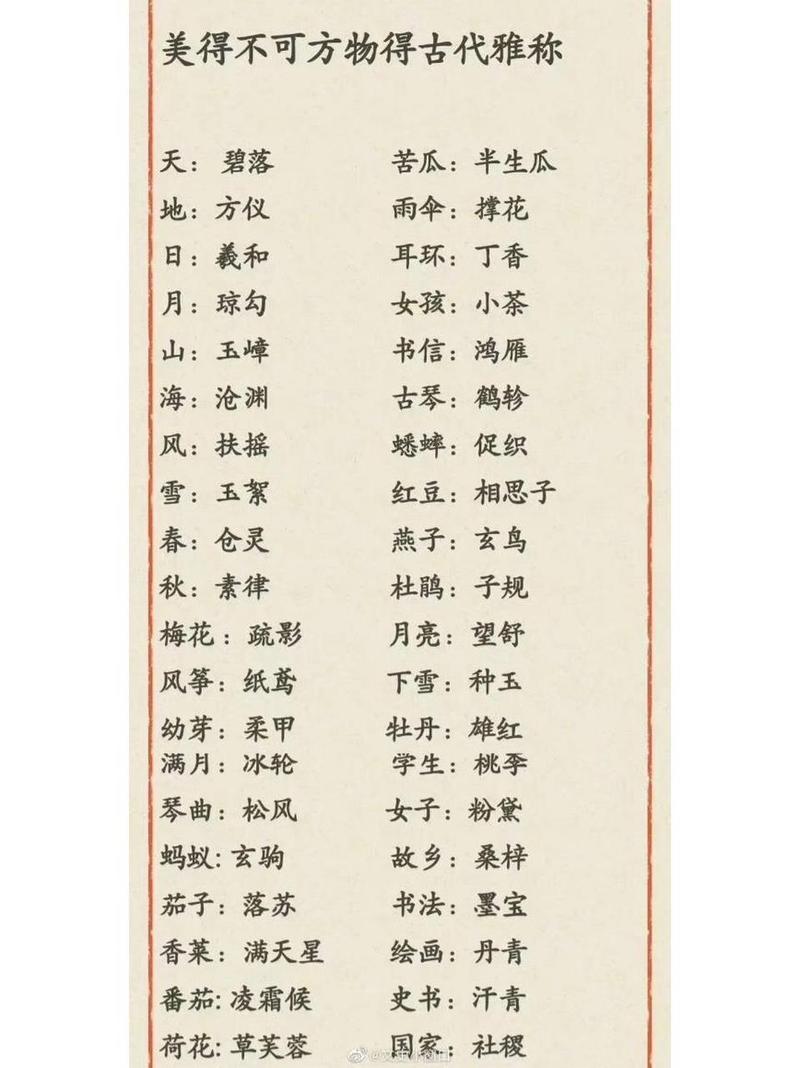 美得不可方物得古代雅称
天： 碧落 苦瓜：半生瓜
地：方仪 雨伞：撑花
日：羲和 耳环：丁香
月：琼勾 女孩：小茶
山：玉嶂 书信：鸿雁
海：沧渊 古琴：鹤轸
风：扶摇 蟋蟀：促织
雪：玉絮 红豆：相思子
春：仓灵 燕子：玄鸟
秋：素律 杜鹃：子规
梅花：疏影 月亮：望舒
风筝：纸鸢 下雪：种玉
幼芽：柔甲 牡丹：雄红
满月：冰轮 学生：桃李
琴曲：松风 女子：粉黛
蚂蚁: 玄驹 故乡：桑梓
茄子：落苏 书法：墨宝
香菜：满天星 绘画：丹青
番茄: 凌霜候 史书：汗青
荷花: 草芙蓉 国家：社稷